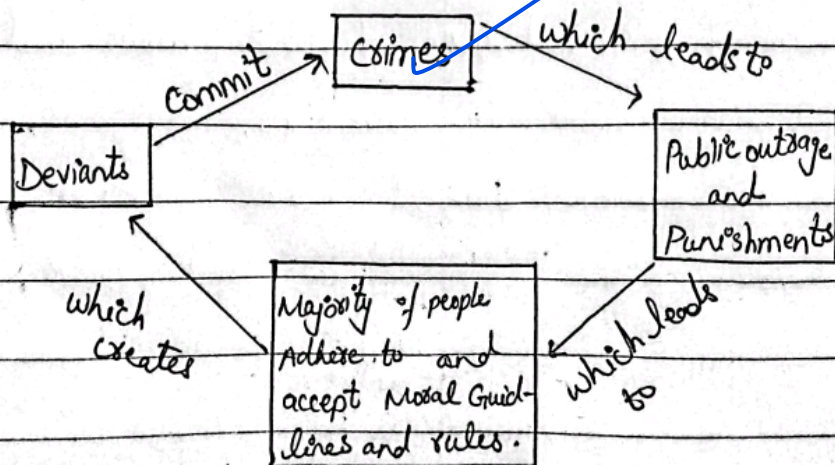 Crimes
which leads to
Commit
Deviants
Public outrage
and
Punishments
which
creates
Majority of people
Adhere to and
accept Moral Guid-
lines and rules.
which leads
to